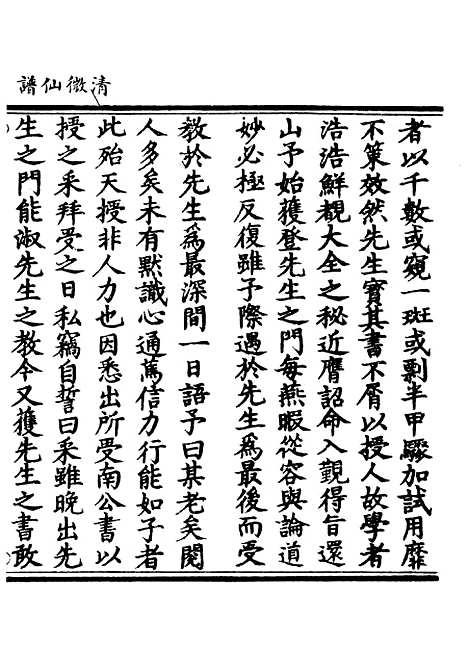 清微仙譜
者以千數或窺一斑或剽半甲驟加試用靡
不策效然先生寶其書不屑以授人故學者
浩浩鮮覩大全之秘近膺詔命入覲得旨還
山予始獲登先生之門每燕暇從容與論道
妙必極反復雖予際遇於先生爲最後而受
敎於先生爲最深間一日語予曰某老矣閱
人多矣未有默識心通篤信力行能如子者
此殆天授非人力也因悉出所受南公書以
授之采拜受之日私竊自誓曰采雖晚出先
生之門能淑先生之教今又獲先生之書敢